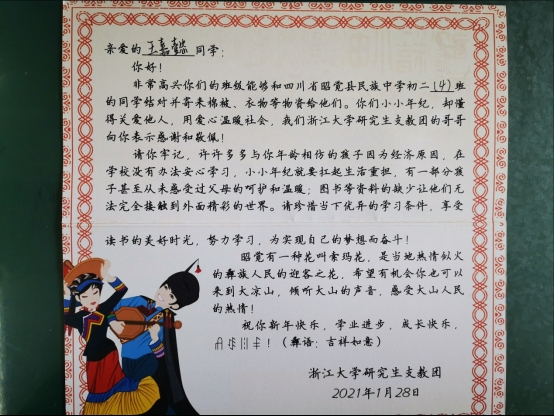 亲爱的王嘉懿同学:
你好!
非常高兴你们的班级能够和四川省昭觉县民族中学初二(4)班
的同学结对并寄来棉被、衣物等物资给他们。你们小小年纪,却懂
得关爱他人,用爱心温暖社会,我们浙江大学研究生支教团的哥哥
向你表示感谢和敬佩!
请你牢记,许许多多与你年龄相仿的孩子因为经济原因,在
学校没有办法安心学习,小小年纪就要扛起生活重担,有一部分孩
子甚至从未感受过父母的呵护和温暖;图书等资料的缺少让他们无
法完全接触到外面精彩的世界。请珍惜当下优异的学习条件,享受
读书的美好时光,努力学习,为实现自己的梦想而奋斗!
昭觉有一种花叫索玛花,是当地热情似火
的彝族人民的迎客之花,希望有机会你也可以
来到大凉山,倾听大山的声音,感受大山人民
的热情!
祝你新年快乐,学业进步,成长快乐,
(彝语:吉祥如意)
浙江大学研究生支教团
2021年1月28日